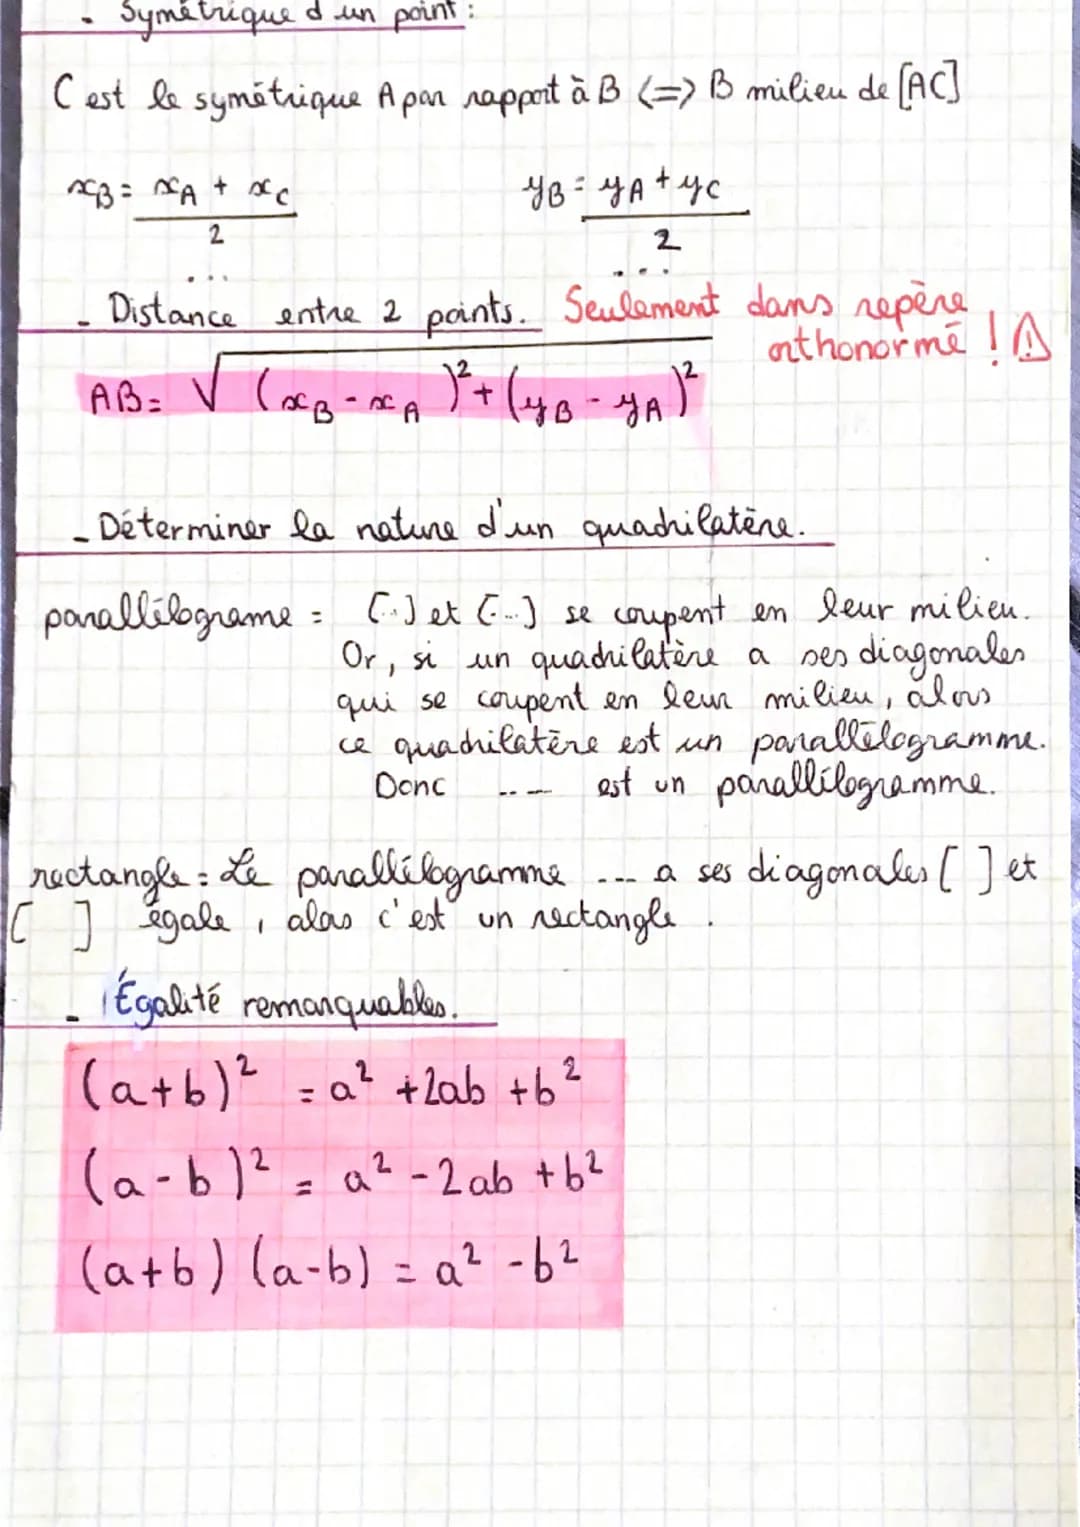 - Symétrique d'un point :
C est le symétrique A par rapport à B <=> B milieu de [AC]
xB = xA + xC / 2    yB = yA + yC / 2
...    ...
- Distance entre 2 points. Seulement dans repère
orthonormé ! ⚠
AB = √(xB - xA)² + (yB - yA)²
- Déterminer la nature d'un quadrilatère.
parallélograme = [..] et [...] se coupent en leur milieu.
Or, si un quadrilatère a ses diagonales
qui se coupent en leur milieu, alors
ce quadrilatère est un parallélogramme.
Donc ---- est un parallélogramme.
rectangle = Le parallélogramme --- a ses diagonales [ ] et
[ ] égale, alors c'est un rectangle.
- Égalité remarquables.
(a+b)² = a² + 2ab + b²
(a-b)² = a² - 2ab + b²
(a+b) (a-b) = a² - b²